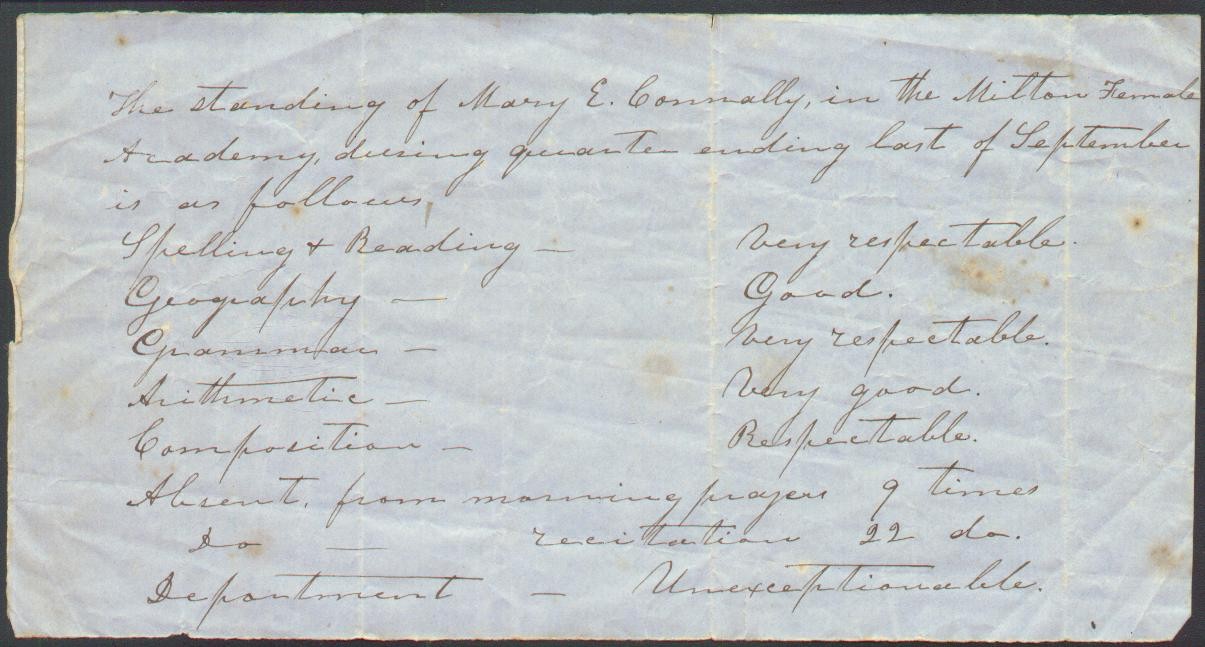 The standing of Mary E. Connally, in the Milton Female
Academy, during quarter ending last of September
is as follows,
Spelling & Reading —
Very respectable.
Geography —
Good.
Grammar —
Very respectable.
Arithmetic —
Very good.
Composition —
Respectable.
Absent, from morning prayers 9 times
Do — recitation 22 do.
Deportment — Unexceptionable.